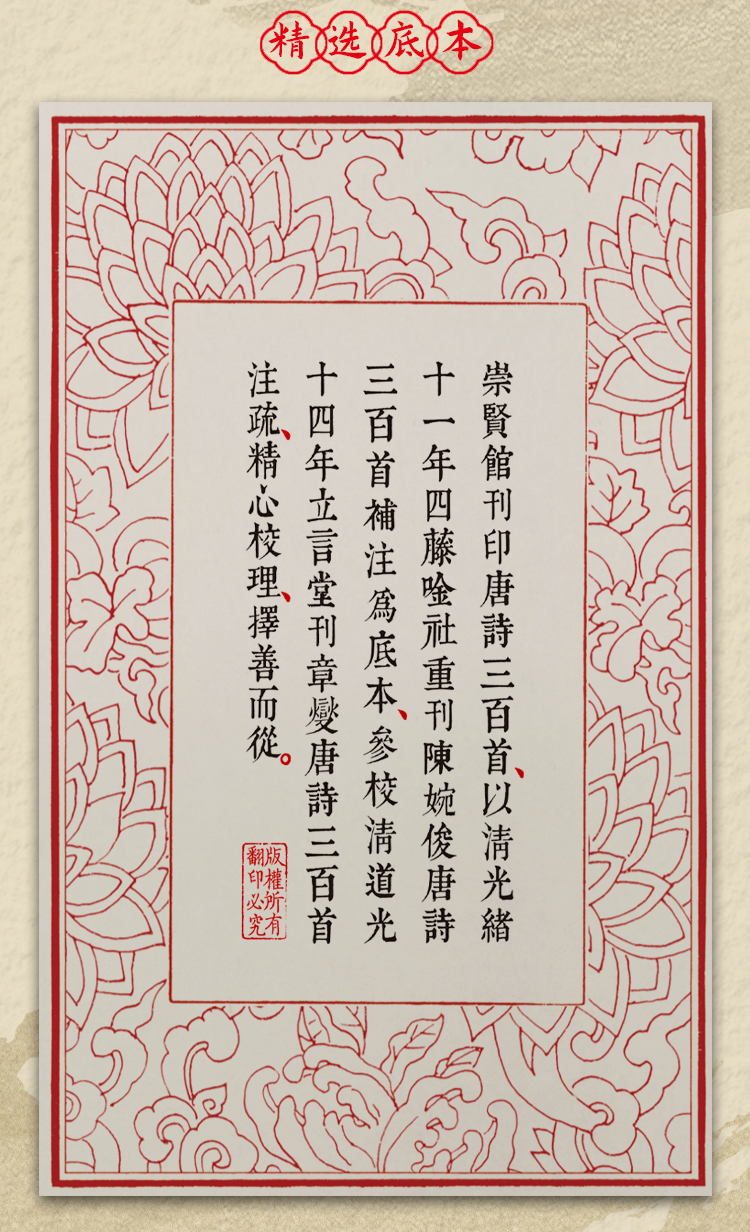 精选底本
崇賢館刊印唐詩三百首、以清光緒
十一年四藤唫社重刊陳婉俊唐詩
三百首補注爲底本、參校清道光
十四年立言堂刊章燮唐詩三百首
注疏、精心校理、擇善而從。
版權所有
翻印必究